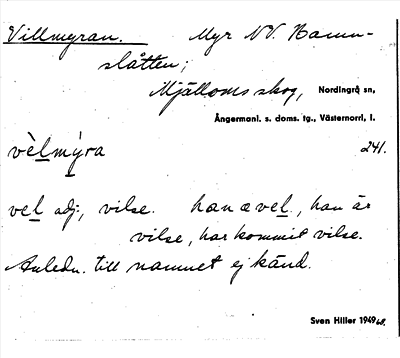 Villmyran. Myr NV. Bamm-
slåtten;
Mjälloms skog, Nordingrå sn,
Ångermanl. s. doms. tg., Västernorrl, l.
vèlmýra 241.
vel adj., vilse. han æ vel, han är
vilse, har kommit vilse.
Anledn. till namnet ej känd.
Sven Hiller 1949